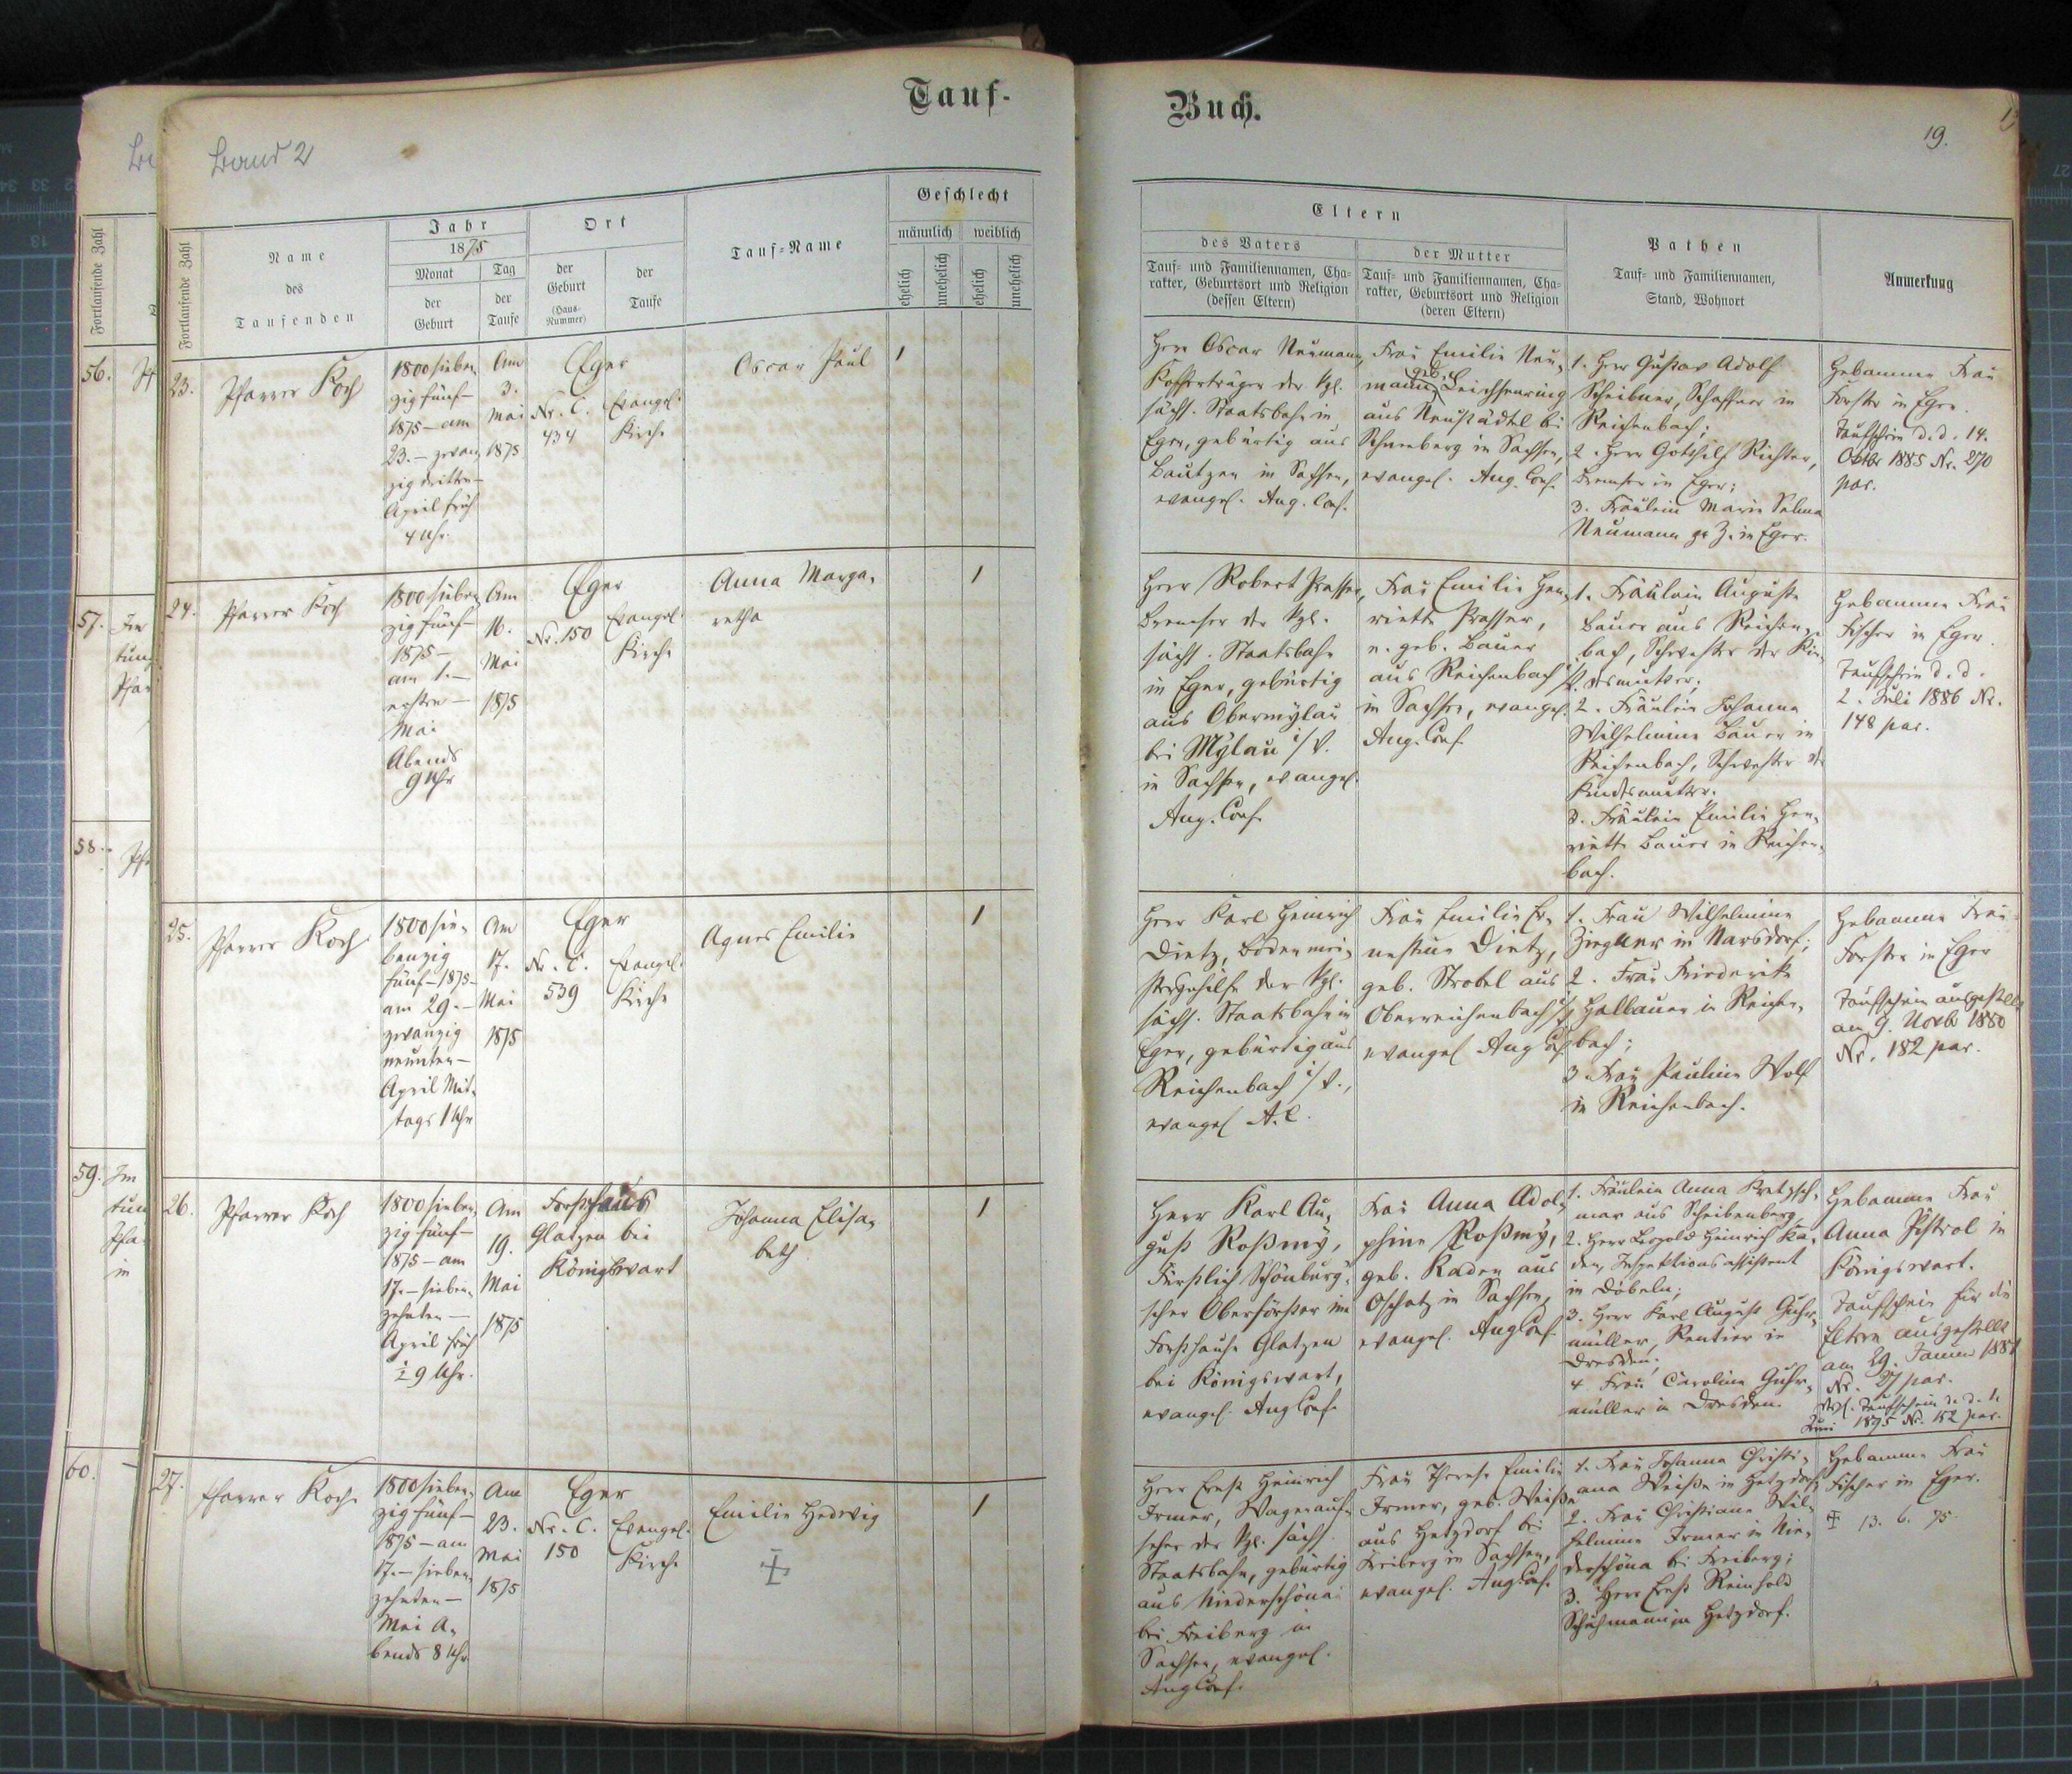 Tauf-
Buch.
Band 2
19.
Fortlaufende Zahl
Fortlaufende Zahl
Name
des
Taufenden
Jahr
1875
Monat
der
Geburt
Tag
der
Taufe
Ort
der
Geburt
(Haus-
Nummer)
der
Taufe
Tauf-Name
Geschlecht
männlich
weiblich
ehelich
unehelich
ehelich
unehelich
Eltern
des Vaters
Tauf- und Familiennamen, Cha-
rakter, Geburtsort und Religion
(dessen Eltern)
der Mutter
Tauf- und Familiennamen, Cha-
rakter, Geburtsort und Religion
(deren Eltern)
Pathen
Tauf- und Familiennamen,
Stand, Wohnort
Anmerkung
56.
57.
58.
59.
60.
23.
Pfarrer Koch
1800 sieben
zig fünf-
1875 - am
23. - zwan
zig dritten -
April früh
4 Uhr.
Am
3.
Mai
1875
Eger
Nr. C.
434
Evangel.
Kirche
Oscar Paul
1
Herr Oscar Neumann,
Kofferträger der kgl.
sächs. Staatsbahn in
Eger, gebürtig aus
Bautzen in Sachsen,
evangel. Aug. Conf.
Frau Emilie Neu-
mann, geb. Leichsenring
aus Neustädtel bei
Schneeberg in Sachsen,
evangel. Aug. Conf.
1. Herr Gustav Adolf
Scheibner, Schaffner in
Reichenbach;
2. Herr Gotthilf Richter,
Bremser in Eger;
3. Fräulein Marie Selma
Neumann z. Z. in Eger.
Hebamme Frau
Forster in Eger.
Taufschein d. d. 14.
Octbr 1885 Nr. 270
par.
24.
Pfarrer Koch
1800 sieben
zig fünf-
1875 -
am 1. -
ersten -
Mai
Abends
9 Uhr
Am
16.
Mai
1875
Eger
Nr. 150
Evangel.
Kirche
Anna Marga-
retha
1
Herr Robert Prasser,
Bremser der kgl.
sächs. Staatsbahn
in Eger, gebürtig
aus Obermylau
bei Mylau i/V.
in Sachsen, evangel.
Aug. Conf.
Frau Emilie Hen-
riette Prasser,
n. geb. Bauer
aus Reichenbach i/V.
in Sachsen, evangel.
Aug. Conf.
1. Fräulein Auguste
Bauer aus Reichen-
bach, Schwester der Kin-
desmutter;
2. Fräulein Johanna
Wilhelmine Bauer in
Reichenbach, Schwester der
Kindsmutter.
3. Fräulein Emilie Hen-
riette Bauer in Reichen-
bach.
Hebamme Frau
Fischer in Eger.
Taufschein d. d.
2. Juli 1886 Nr.
148 par.
25.
Pfarrer Koch.
1800 sie-
benzig
fünf - 1875 -
am 29. -
zwanzig
neunten -
April Mit-
tags 1 Uhr
Am
17.
Mai
1875
Eger
Nr. C.
539
Evangel.
Kirche
Agnes Emilie
1
Herr Karl Heinrich
Dietz, Bodenmei-
stergehilfe der kgl.
sächs. Staatsbahn in
Eger, gebürtig aus
Reichenbach i/V.,
evangel A. C.
Frau Emilie Er-
nestine Dietz,
geb. Strobel aus
Oberreichenbach i/V
evangel Aug Conf.
1. Frau Wilhelmine
Ziegler in Narsdorf;
2. Frau Friederike
Holbauer in Reichen-
bach;
3. Frau Pauline Wolf
in Reichenbach.
Hebamme Frau
Forster in Eger
Taufschein ausgestellt
am 9. Novbr 1880
Nr. 182 par.
26.
Pfarrer Koch
1800 sieben
zig fünf-
1875 - am
17. - sieben-
zehnten -
April früh
½ 9 Uhr.
Am
19.
Mai
1875
Forsthaus
Glatzen bei
Königswart
Johanna Elisa-
beth
1
Herr Karl Au-
gust Roßmy,
Fürstlich Schönburg-
scher Oberförster im
Forsthause Glatzen
bei Königswart,
evangel. Aug Conf.
Frau Anna Adol-
phine Roßmy,
geb. Kaden aus
Oschatz in Sachsen,
evangel. Aug Conf.
1. Fräulein Anna Kretzsch-
mar aus Scheibenberg
2. Herr Leopold Heinrich Ka-
den, Inspektionsassistent
in Döbeln;
3. Herr Karl August Guhr-
müller, Rentier in
Dresden;
4. Frau Caroline Guhr-
müller in Dresden.
Hebamme Frau
Anna in
Königswart.
Taufschein für die
Eltern ausgestellt
am 29. Januar 1881
Nr. 27 par.
Taufschein d. d. 1.
Juni 1895 Nr. 152 par.
27.
Pfarrer Koch.
1800 sieben-
zig fünf-
1875 - am
17. - sieben-
zehnten -
Mai A-
bends 8 Uhr.
Am
23.
Mai
1875
Eger
Nr. C.
150
Evangel.
Kirche
Emilie Hedwig
1
Herr Ernst Heinrich
Irmer, Wagenauf-
seher der kgl. sächs.
Staatsbahn, gebürtig
aus Niederschöna
bei Freiberg in
Sachsen, evangel.
Aug Conf.
Frau Therese Emilie
Irmer, geb. Weiße
aus Hetzdorf bei
Freiberg in Sachsen,
evangel. Aug Conf.
1. Frau Johanna Christi-
ana Weiße in Hetzdorf;
2. Frau Christiane Wil-
helmine Irmer in Nie-
derschöna bei Freiberg;
3. Herr Ernst Reinhold
Schuhmann in Hetzdorf.
Hebamme Frau
Fischer in Eger.
13. 6. 75.